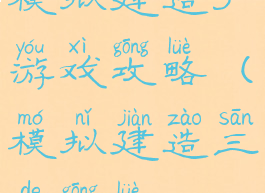 模拟建造了
yóu xì gōng lüè
游戏攻略（
mó nǐ jiàn zào sān
模拟建造三
de gōng lüè